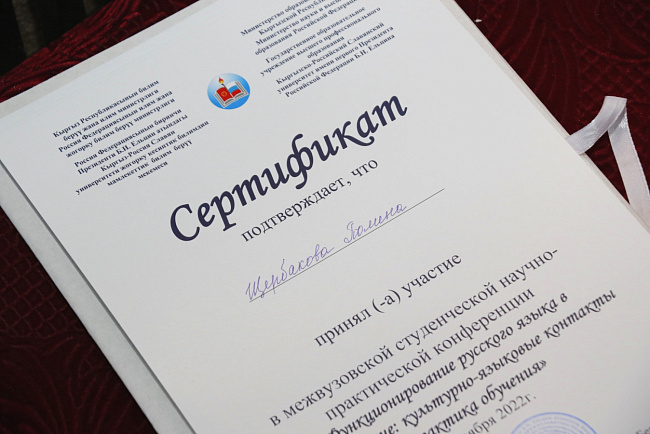 Кыргыз Республикасынын билим
берүү жана илим министрлиги
Россия Федерациясынын илим жана
жогорку билим берүү министрлиги
Россия Федерациясынын биринчи
Президенти Б.Н. Ельцин атындагы
Кыргыз-Россия Славян
университети жогорку кесиптик билимдин
мамлекеттик билим берүү
мекемеси
Министерство образования
Кыргызской Республики
Министерство науки и высшего
образования Российской Федерации
Государственное образовательное
учреждение высшего профессионального
образования
Кыргызско-Российский Славянский
университет имени первого Президента
Российской Федерации Б.Н. Ельцина
Сертификат
подтверждает, что
Щербакова Полина
принял (-а) участие
в межвузовской студенческой научно-
практической конференции
функционирование русского языка в
культурно-языковые контакты
обучения»
2022г.